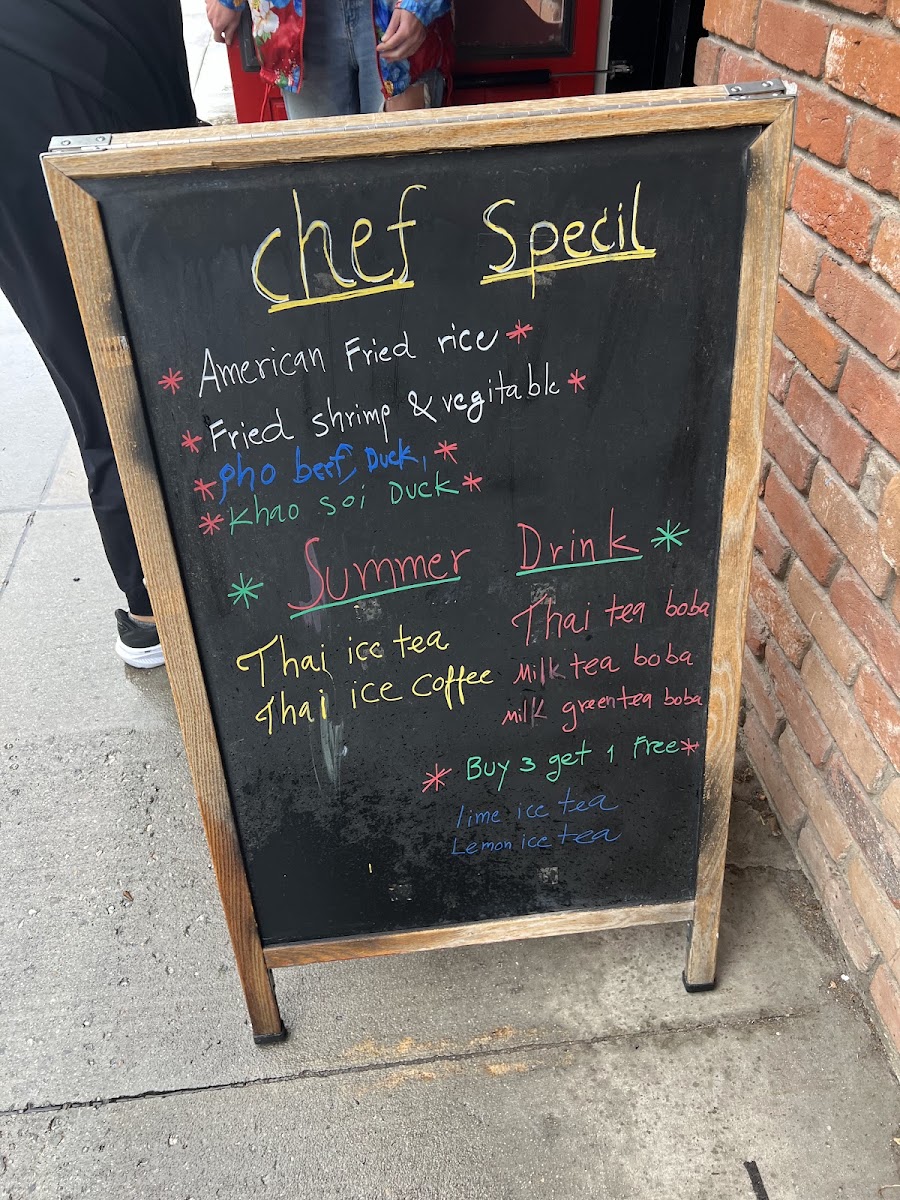 Chef Specil
* American Fried rice *
* Fried shrimp & vegitable *
* pho beef, Duck, *
* Khao Soi Duck *
* Summer Drink *
Thai ice tea
Thai ice coffee
Thai tea boba
Milk tea boba
Milk greentea boba
* Buy 3 get 1 Free *
lime ice tea
Lemon ice tea